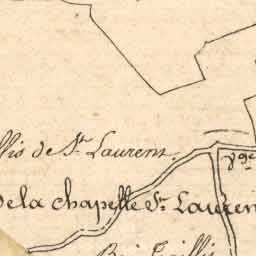 llis de St. Laurent.
De la chapelle St. Lauren
Taillis